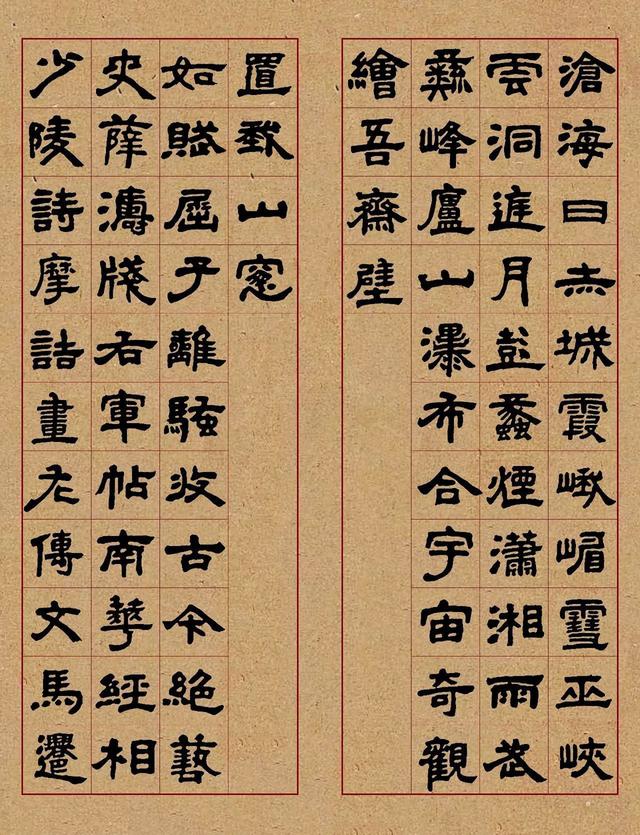 滄海日赤城霞峨嵋雪巫峽
雲洞庭月彭蠡煙瀟湘雨武
彝峰廬山瀑布合宇宙奇觀
繪吾齋壁
少陵詩摩詰畫左傳文馬遷
史薛濤牋右軍帖南華經相
如賦屈子離騷收古今絕藝
置我山窗